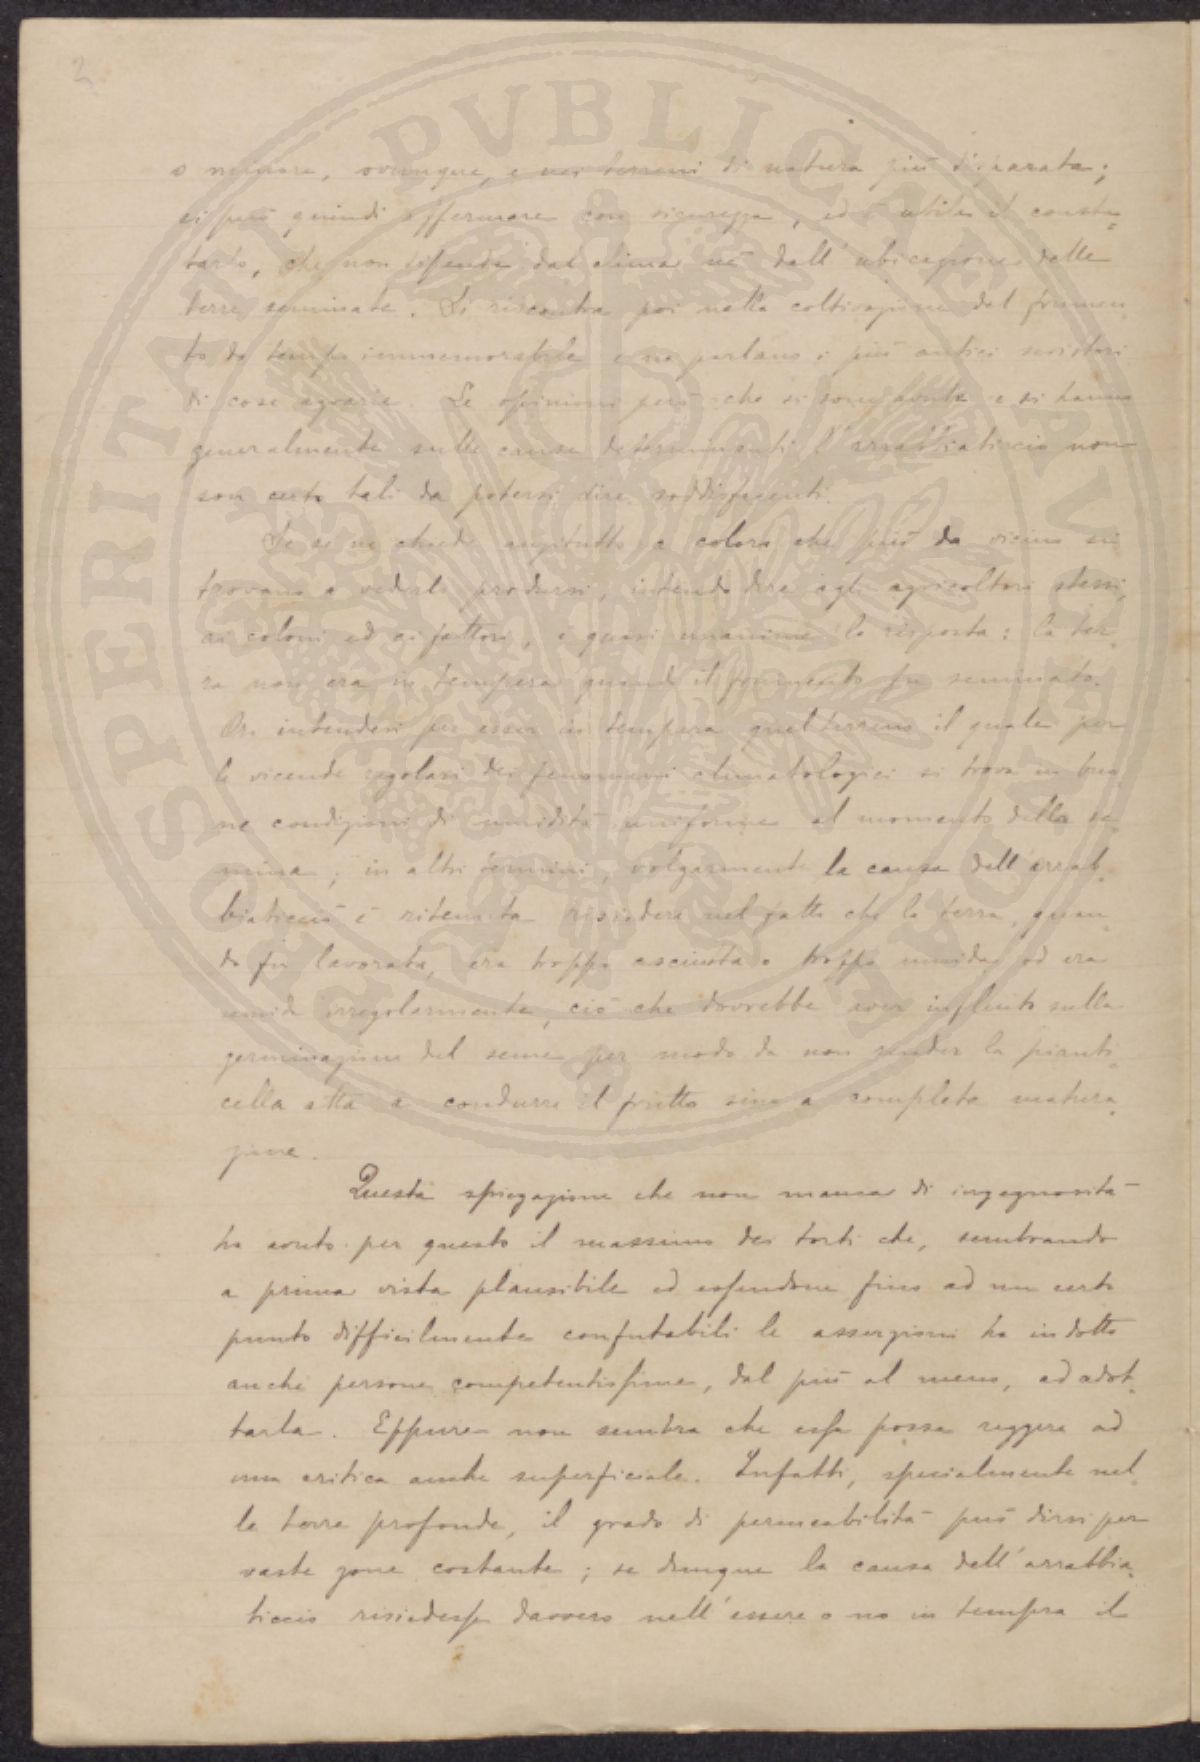 2
o minore, ovunque, e nei terreni di natura più disparata;
si può quindi affermare con sicurezza, ed è utile il consta-
tarlo, che non dipende dal clima nè dall'ubicazione delle
terre seminate. Si riscontra poi nella coltivazione del frumen-
to da tempo immemorabile e ne parlano i più antichi scrittori
di cose agrarie. Le opinioni però che si sono avute e si hanno
generalmente sulle cause determinanti l'arrabbiaticcio non
son certo tali da potersi dire soddisfacenti.
Se se ne chiede anzitutto a coloro che più da vicino si
trovano a vederlo prodursi, intendo dire agli agricoltori stessi,
ai coloni ed ai fattori, è quasi unanime la risposta: la ter-
ra non era in tempera quando il frumento fu seminato.
Or intendesi per esser in tempera quel terreno il quale per
le vicende regolari dei fenomeni climatologici si trova in buo
ne condizioni di umidità uniforme al momento della se-
mina; in altri termini, volgarmente la causa dell'arrab-
biaticcio è ritenuta risiedere nel fatto che la terra, quan-
do fu lavorata, era troppo asciutta o troppo umida od era
umida irregolarmente, ciò che dovrebbe aver influito sulla
germinazione del seme per modo da non render la pianti-
cella atta a condurre il frutto sino a completa matura-
zione.
Questa spiegazione che non manca di ingegnosità
ha avuto per questo il massimo dei torti che, sembrando
a prima vista plausibile ed essendone fino ad un certo
punto difficilmente confutabili le asserzioni ha indotto
anche persone competentissime, dal più al meno, ad adot-
tarla. Eppure non sembra che essa possa reggere ad
una critica anche superficiale. Infatti, specialmente nel-
le terre profonde, il grado di permeabilità può dirsi per
vaste zone costante; se dunque la causa dell'arrabbia-
ticcio risiedesse davvero nell'essere o no in tempra il
PROSPERITATI PVBLICAE AVGENDAE